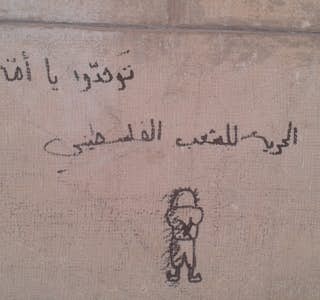 توحدوا يا أمة
الحرية للشعب الفلسطيني